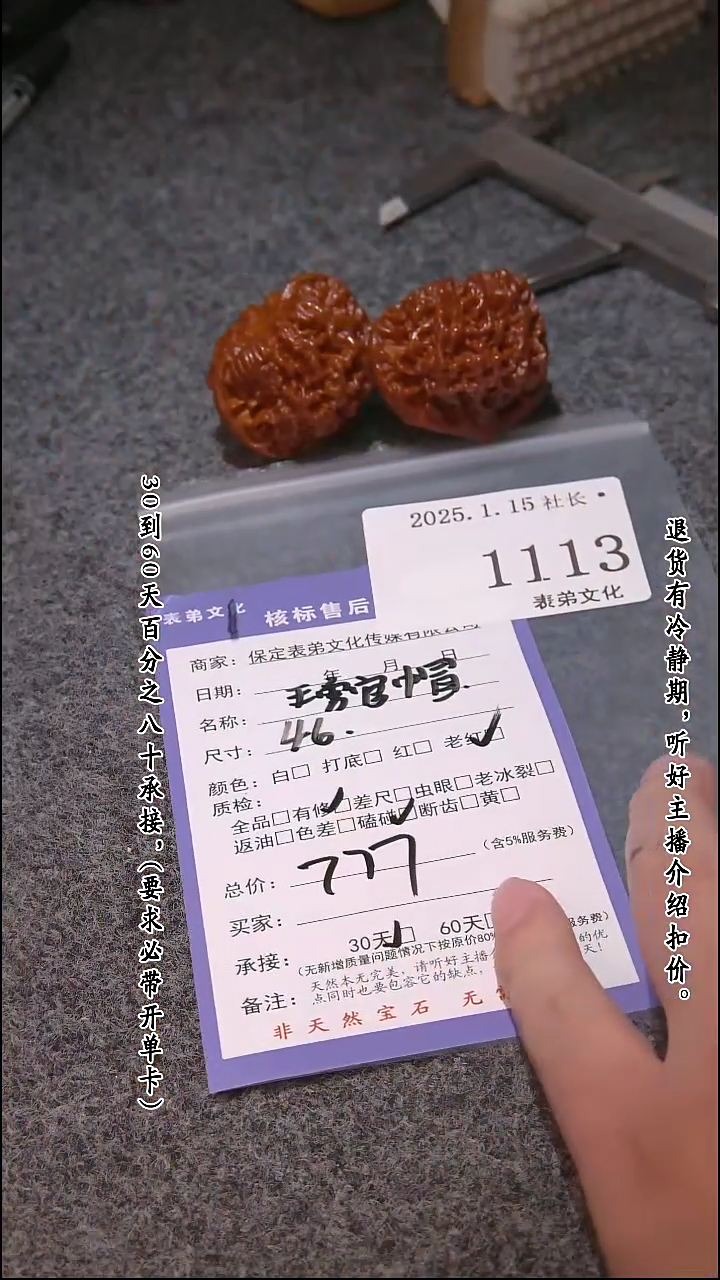 2025.1.15 社长
1113
表弟文化
表弟文化
核标售后
商家：保定表弟文化传媒有限公司
日期： 年 月 日
名称：官帽
尺寸：46.
颜色：白□ 打底□ 红□ 老红□
质检：
全品□有修□差尺□虫眼□老冰裂□
返油□色差□磕碰□断齿□黄□
总价：777 （含5%服务费）
买家：
承接：30天□ 60天□ 服务费）
（无新增质量问题情况下按原价80%
备注：天然本无完美，请听好主播 的优
点同时也要包容它的缺点， 天！
非天然宝石 无
30到60天百分之八十承接，（要求必带开单卡）
退货有冷静期，听好主播介绍扣价。